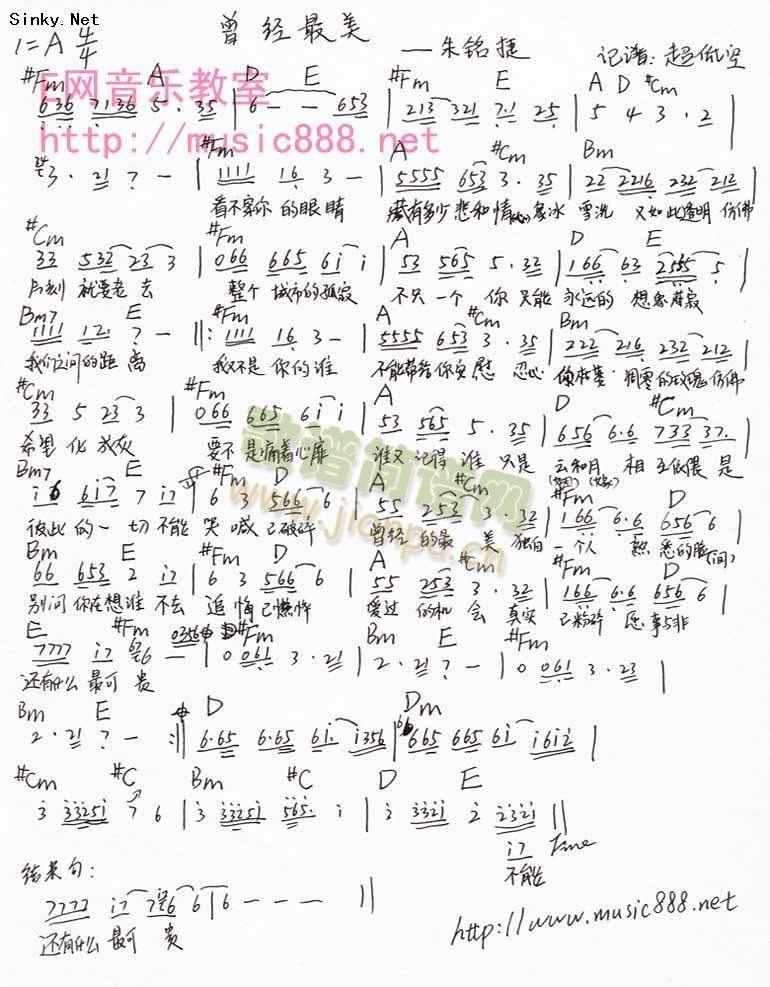 Sinky.Net
曾经最美
1=A 4/4
——朱铭捷
记谱:超低空
E网音乐教室
http://music888.net
#Fm A D E #Fm E A D #Cm
636 7136 5· 35 | 6 - - 653 | 213 321 7·1 25 | 5 4 3 · 2 |
#Fm A #Cm Bm
3· 21 7 - | 1111 16 3 - | 5555 653 3· 35 | 22 2216 232 212
看不穿你的眼睛 藏有多少悲和情 像冰雪洗 又如此透明 仿佛
#Cm #Fm A D E
33 532 23 3 | 066 665 61 1 | 53 565 5· 32 | 166 63 2555 5 |
片刻就要老去 整个城市的孤寂 不只一个你 只能永远的想象
Bm7 E #Fm A #Cm Bm
1111 121 7 - ||: 1111 16 3 - | 5555 653 3· 35 | 222 216 232 212
我们之间的距离 我又不是你的谁 不能带给你安慰 忍心 凋零的玫瑰 仿佛
#Cm #Fm A D #Cm
33 5 23 3 | 066 665 61 1 | 53 565 5· 35 | 656 6·6 733 37· |
希望化成灰 要不是痛着心扉 谁又记得谁 只是云和月 相互依偎 是
Bm7 E #Fm D A #Cm #Fm D
16 617 7 17 | 6 3 566 6 | 55 253 3· 32 | 166 6·6 656 6 |
彼此的一切不能哭喊已破碎 曾经的最美 独自一个人 熟悉的脸(间)
Bm E #Fm D A #Cm
66 653 2 17 | 6 3 566 6 | 55 253 3· 32 | 166 6·6 656 6 |
别问你在想谁 不去追悔已憔悴 爱过的机会 真实已粉碎 愿事与非
E #Fm #Fm Bm E #Fm
7777 17 6 - | 0 061 3· 21 | 2· 21 7 - | 0 061 3· 23 |
还有什么最可贵
Bm E D Dm
2· 21 7 - :|| 6·65 6·65 61· 1356 | 665 665 61 1612 |
#Cm #C Bm #C D E
3 33251 7 6 | 3 33251 565· 1 | 2 3321 2 2321 ||
17 Fine
不能
结束句:
7777 17 76 6 | 6 - - - ||
还有什么最可贵
http://www.music888.net
歌谱简谱网
www.jianpu.cn